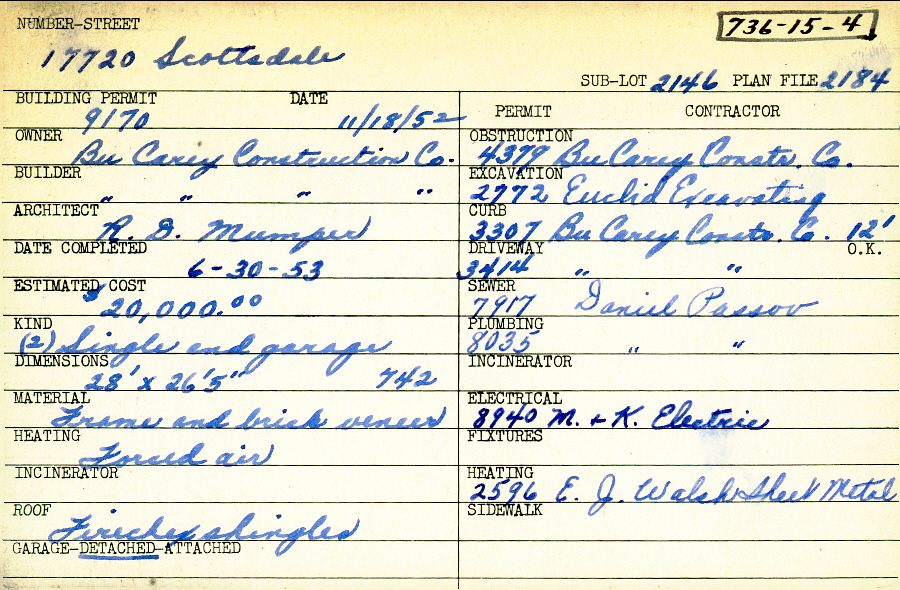 NUMBER-STREET
736-15-4
17720 Scottsdale
SUB-LOT 2146 PLAN FILE 2184
BUILDING PERMIT DATE
9170 11/18/52
OWNER
Bu Carey Construction Co.
BUILDER
" " " "
ARCHITECT
R. D. Mumper
DATE COMPLETED
6-30-53
ESTIMATED COST
$20,000.00
KIND
(2) Single and garage
DIMENSIONS
28' x 26'5" 742
MATERIAL
Frame and brick veneer
HEATING
Forced air
INCINERATOR
ROOF
Firechex shingles
GARAGE-DETACHED-ATTACHED
PERMIT CONTRACTOR
OBSTRUCTION
4379 Bu Carey Constr. Co.
EXCAVATION
2772 Euclid Excavating
CURB
3307 Bu Carey Constr. Co. 12'
DRIVEWAY O.K.
3414 " "
SEWER
7917 Daniel Passov
PLUMBING
8035 " "
INCINERATOR
ELECTRICAL
8940 M. & K. Electric
FIXTURES
HEATING
2596 E. J. Walsh Sheet Metal
SIDEWALK